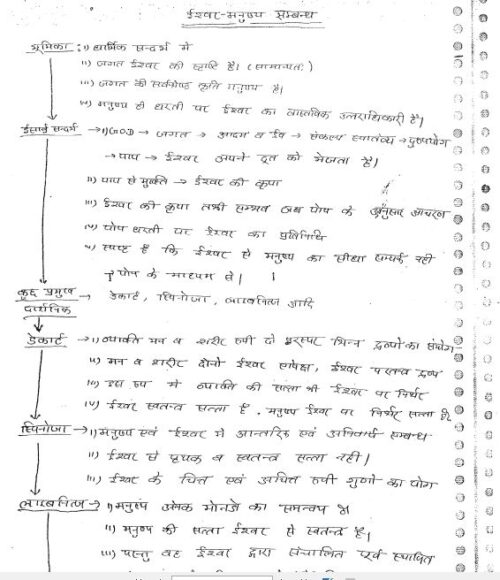 ईश्वर-मनुष्य सम्बन्ध
भूमिका : i) धार्मिक सन्दर्भ में
ii) जगत ईश्वर की सृष्टि है। (सामान्यतः)
iii) जगत की सर्वश्रेष्ठ कृति मनुष्य है।
iv) मनुष्य ही धरती पर ईश्वर का वास्तविक उत्तराधिकारी है।
ईसाई सन्दर्भ → i) GOD → जगत → आदम व ईव → संकल्प स्वातंत्र्य → दुरुपयोग
→ पाप → ईश्वर अपने दूत को भेजता है।
ii) पाप से मुक्ति → ईश्वर की कृपा
iii) ईश्वर की कृपा तभी सम्भव जब पोप के अनुसार आचरण
iv) पोप धरती पर ईश्वर का प्रतिनिधि
v) स्पष्ट है कि ईश्वर से मनुष्य का सीधा सम्पर्क नहीं
पोप के माध्यम से।
कुछ प्रमुख → डेकार्ट, स्पिनोजा, लाइबनित्ज आदि
दार्शनिक
डेकार्ट → i) व्यक्ति मन व शरीर रूपी दो परस्पर भिन्न द्रव्यों का संयोग
ii) मन व शरीर दोनों ईश्वर सापेक्ष, ईश्वर परतन्त्र द्रव्य
iii) इस रूप में व्यक्ति की सत्ता भी ईश्वर पर निर्भर
iv) ईश्वर स्वतन्त्र सत्ता है, मनुष्य ईश्वर पर निर्भर सत्ता है
स्पिनोजा → i) मनुष्य एवं ईश्वर में आन्तरिक एवं अनिवार्य सम्बन्ध
ii) ईश्वर से पृथक व स्वतन्त्र सत्ता नहीं।
iii) ईश्वर के चित्त एवं अचित्त रूपी गुणों का योग
लाइबनित्ज → i) मनुष्य अनेक मोनडों का समन्वय है।
ii) मनुष्य की सत्ता ईश्वर से स्वतन्त्र है।
iii) परन्तु वह ईश्वर द्वारा संचालित एवं स्थापित